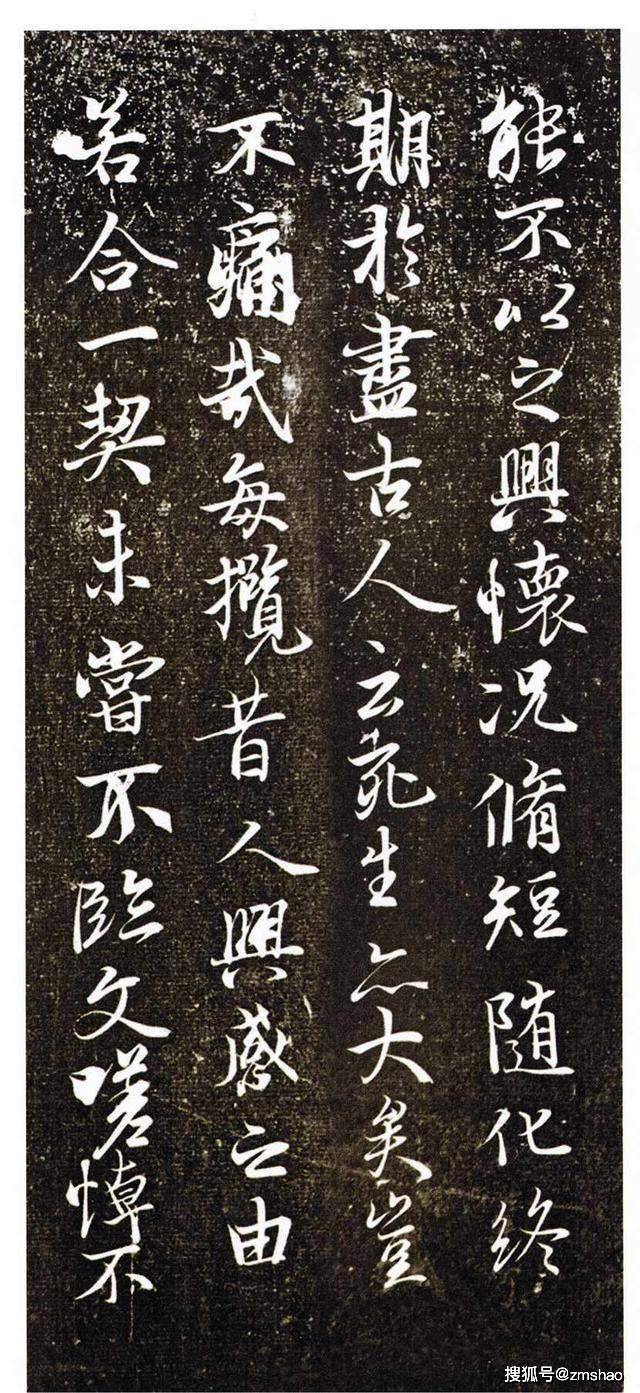 能不以之興懷況脩短随化終
期於盡古人云死生亦大矣豈
不痛哉每攬昔人興感之由
若合一契未嘗不臨文嗟悼不
搜狐号@zmshao